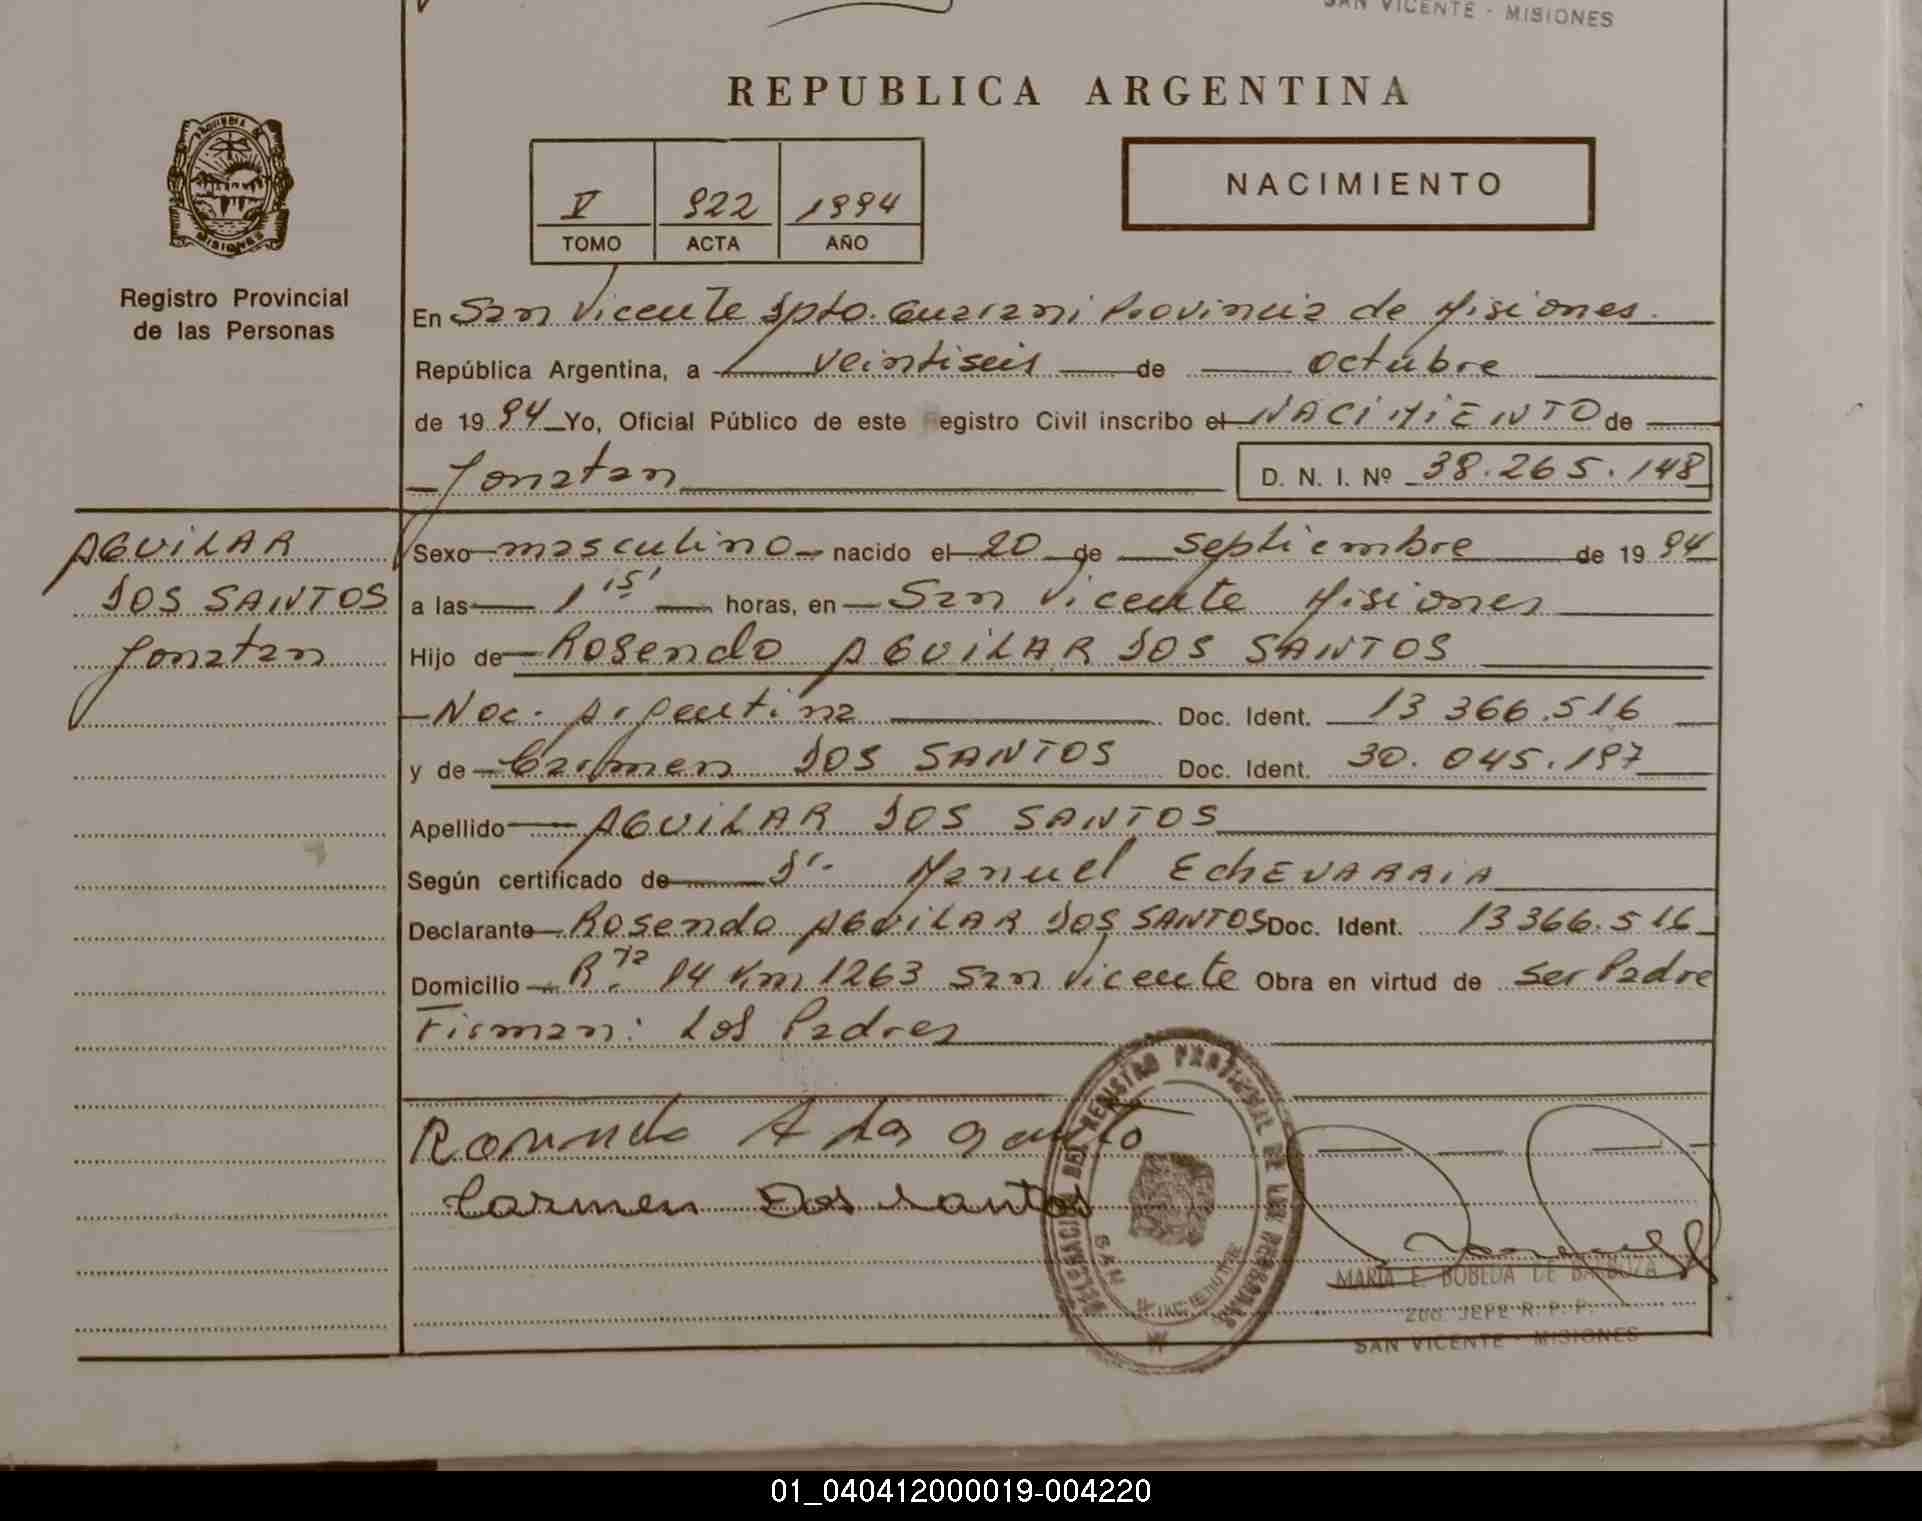 SAN VICENTE - MISIONES
REPUBLICA ARGENTINA
NACIMIENTO
V 922 1994
TOMO ACTA AÑO
PROVINCIA DE
MISIONES
Registro Provincial
de las Personas
En San Vicente Dpto. Guarani Provincia de Misiones.
República Argentina, a veintiseis de octubre
de 1994 Yo, Oficial Público de este Registro Civil inscribo el NACIMIENTO de
Jonatan D. N. I. Nº 38.265.148
AGUILAR
DOS SANTOS
Jonatan
Sexo masculino nacido el 20 de septiembre de 1994
a las 1 15' horas, en San Vicente Misiones
Hijo de Rosendo AGUILAR DOS SANTOS
Nac. Argentina Doc. Ident. 13 366.516
y de Carmen DOS SANTOS Doc. Ident. 30.045.197
Apellido AGUILAR DOS SANTOS
Según certificado de Dr. Manuel EchEVARRIA
Declarante Rosendo AGUILAR DOS SANTOS Doc. Ident. 13 366.516
Domicilio R. 14 Km 1263 San Vicente Obra en virtud de ser Padre
Firman: Los Padres
Carmen Dos santos
DELEGACION DEL REGISTRO PROVINCIAL DE LAS PERSONAS
SAN VICENTE
MARIA E. BOBEDA DE BARBOZA
2do. JEFE R. P. P.
SAN VICENTE - MISIONES
01_040412000019-004220